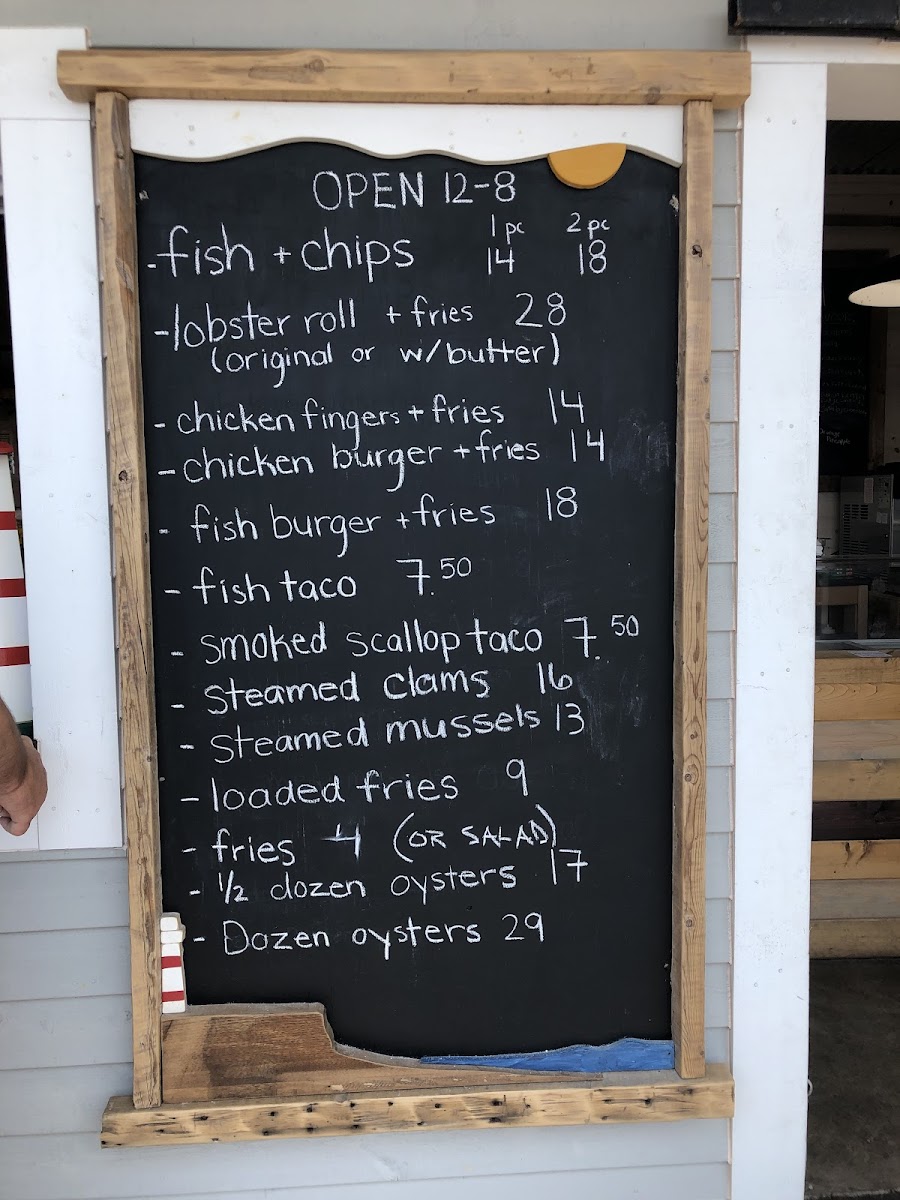 OPEN 12-8
1 pc 2 pc
-fish + chips 14 18
-lobster roll + fries 28
(original or w/butter)
- chicken fingers + fries 14
- chicken burger + fries 14
- fish burger + fries 18
- fish taco 7.50
- smoked scallop taco 7.50
- steamed clams 16
- steamed mussels 13
- loaded fries 9
- fries 4 (OR SALAD)
- 1/2 dozen oysters 17
- Dozen oysters 29